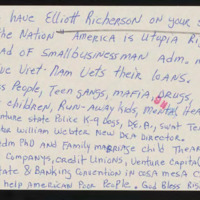 have Elliott Richerson on your s
the Nation America is Utopia Ri
ad of Smallbusinessman Adm. 
ive Viet-Nam Vets their loans.
ss People, Teen gangs, mafia, Drugs,
children, Run-Away kids, mental Hea
nture state Police K-9 Dogs, D.E.A.,
tor William Webster New DEA Director.
dm PhD and Family marriage child Thera
Companys, credit Unions, Venture Capital
tate & Banking Convention in Costa mesa C
help American Poor People. God Bless Ris